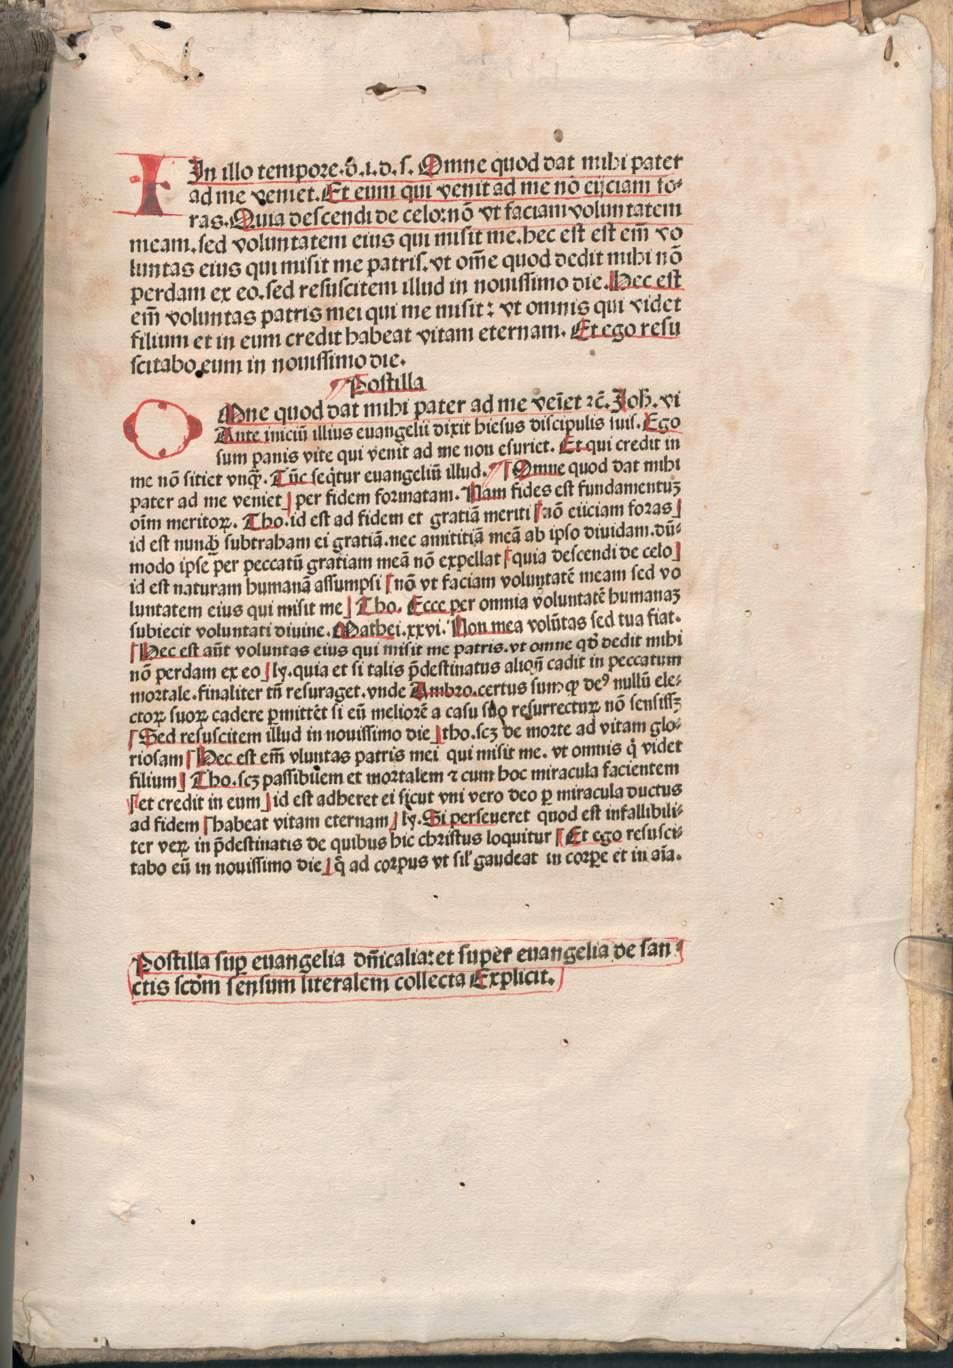 In illo tempore. d̄. i. d. s. Omne quod dat mihi pater
ad me veniet. Et eum qui venit ad me nō eijciam fo⸗
ras. Quia descendi de celo: nō vt faciam voluntatem
meam. sed voluntatem eius qui misit me. hec est est em̄ vo
luntas eius qui misit me patris. vt om̄e quod dedit mihi nō
perdam ex eo. sed resuscitem illud in nouissimo die. Hec est
em̄ voluntas patris mei qui me misit: vt omnis qui videt
filium et in eum credit habeat vitam eternam. Et ego resu
scitabo eum in nouissimo die.
Postilla
OMne quod dat mihi pater ad me veīet ⁊c̄. Joh̄. vi
Ante iniciū illius euangelii dixit hiesus discipulis suis. Ego
sum panis vite qui venit ad me non esuriet. Et qui credit in
me nō sitiet vnqꝫ. Tūc seq̇tur euangeliū illud. Omne quod dat mihi
pater ad me veniet per fidem formatam. Nam fides est fundamentuꝫ
oīm meritoꝝ. Tho. id est ad fidem et gratiā meriti nō eiiciam foras
id est nunqꝫ subtraham ei gratiā. nec amititiā meā ab ipso diuidam. dū⸗
modo ipse per peccatū gratiam meā nō expellat quia descendi de celo
id est naturam humanā assumpsi nō vt faciam voluntatē meam sed vo
luntatem eius qui misit me Tho. Ecce per omnia voluntatē humanaꝫ
subiecit voluntati diuine. Mathei. xxvi. Non mea volūtas sed tua fiat.
Hec est aūt voluntas eius qui misit me patris. vt omne qd̄ dedit mihi
nō perdam ex eo ly. quia et si talis p̄destinatus aliqn̄ cadit in peccatum
mortale. finaliter tn̄ resuraget. vnde Ambro. certus sum qꝫ deꝰ nullū ele⸗
ctoꝝ suoꝝ cadere ꝑmittēt si eū meliorē a casu suo resurrectuꝝ nō sensissꝫ
Sed resuscitem illud in nouissimo die tho. scꝫ de morte ad vitam glo⸗
riosam Hec est em̄ vluntas patris mei qui misit me. vt omnis q̇ videt
filium Tho. scꝫ passibilem et mortalem ⁊ cum hoc miracula facientem
et credit in eum id est adheret ei sicut vni vero deo ꝑ miracula ductus
ad fidem habeat vitam eternam ly. Si perseueret quod est infallibili⸗
ter veꝝ in p̄destinatis de quibus hic christus loquitur Et ego resusci⸗
tabo eū in nouissimo die q̄ ad corpus vt sil' gaudeat in corꝑe et in aīa.
Postilla suꝑ euangelia dn̄icalia: et super euangelia de san⸗
ctis scd̄m sensum literalem collecta Explicit.